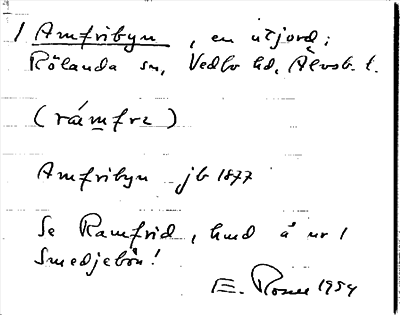 1 Amfribyn, en utjord i
Rölanda sn, Vedbo hd, Älvsb. l.
(rámfrɛ)
Amfribyn jb 1877
Se Ramfrid, hmd å nr 1
Smedjebön!
E. Rosell 1954